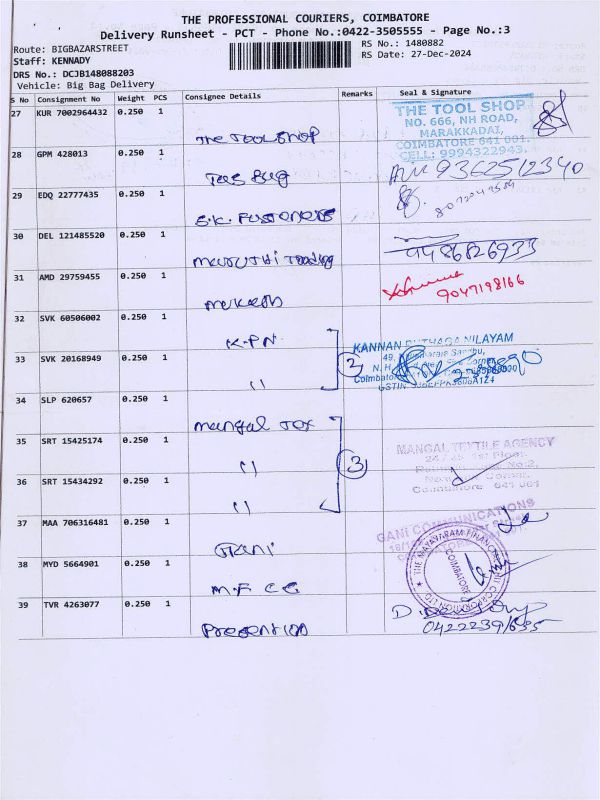 THE PROFESSIONAL COURIERS, COIMBATORE
Delivery Runsheet - PCT - Phone No.:0422-3505555 - Page No.:3
Route: BIGBAZARSTREET
RS No.: 1480882
Staff: KENNADY
RS Date: 27-Dec-2024
DRS No.: DCJB148088203
Vehicle: Big Bag Delivery
S No Consignment No Weight PCS Consignee Details Remarks Seal & Signature
27 KUR 7002964432 0.250 1
THE TOOL SHOP
THE TOOL SHOP
NO. 666, NH ROAD,
MARAKKADAI,
COIMBATORE 641 001.
CELL: 9994322943.
28 GPM 428013 0.250 1
9362512340
29 EDQ 22777435 0.250 1
S.K. FUSTONERS
30 DEL 121485520 0.250 1
MARUTHI Trading
9486826933
31 AMD 29759455 0.250 1
Mukesh
9047198166
32 SVK 60506002 0.250 1
K.P.N.
33 SVK 20168949 0.250 1
"
2
KANNAN PUTHAGA NILAYAM
34 SLP 620657 0.250 1
Mangal Tex
35 SRT 15425174 0.250 1
"
3
MANGAL TEXTILE AGENCY
1st Floor,
Coimbatore 641 001
36 SRT 15434292 0.250 1
"
37 MAA 706316481 0.250 1
Gani
GANI COMMUNICATIONS
38 MYD 5664901 0.250 1
M.F CG
THE MAYAVARAM FINANCIAL
CORPORATION LTD
COIMBATORE
39 TVR 4263077 0.250 1
Presention